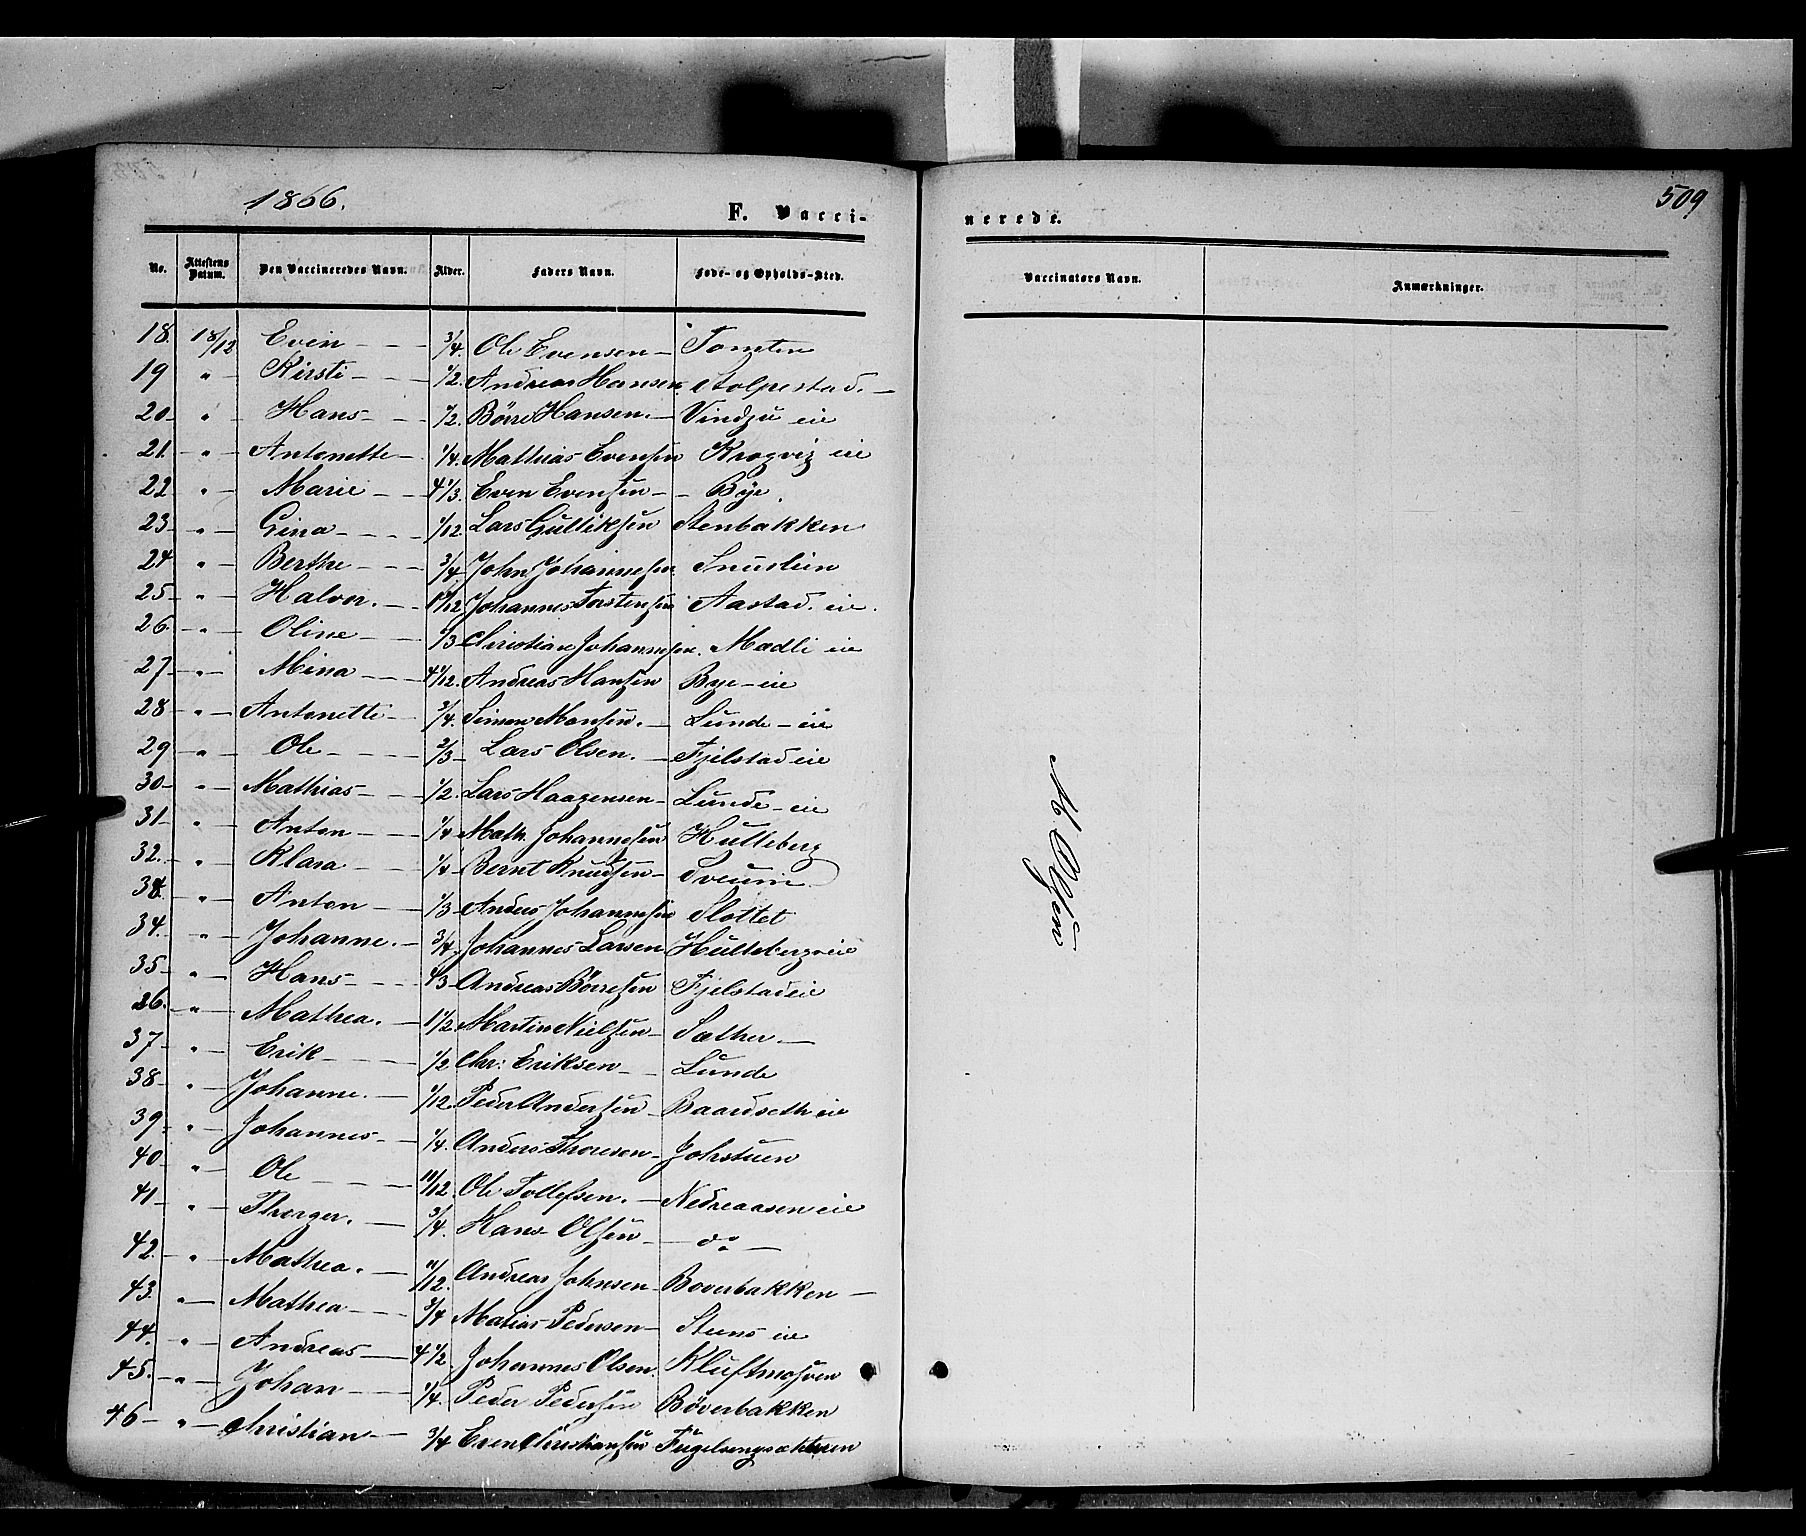 1866.
F. Vacci-
nerede.
509
No. Attestens Datum. Den Vaccineredes Navn. Alder. Faders Navn. Føde- og Opholds-Sted. Vaccinators Navn. Anmærkninger.
18. 18/12 Even 3/4. Ole Evensen Tomten
19 " Kirsti 1/2. Andreas Hansen Stolpestad.
20 " Hans 1/2. Börre Hansen. Vindju eie
21. " Antonette 1/4. Mathias Evensen Krogvig eie
22 " Marie 4 1/3. Even Evensen Bye.
23 " Gina 1/12 Lars Gulliksen Stenbakken
24 " Berthe 3/4. John Johannesen. Snuslien
25 " Halvor. Johannes Torstensen Aastad. eie.
26. " Oline Christian Johannesen. Mædli eie
27 " Mina Andreas Hansen Bye eie
28 " Antonette 3/4. Simen Monsen. Lunde eie
29 " Ole 2/3 Lars Olsen. Fjelstad eie
30 " Mathias 1/2. Lars Haagensen Lunde eie
31 " Anton 1/4 Math. Johannesen Hulleberg
32. " Klara 1/4 Bernt Knudsen Sveum
33. " Anton 1/3 Anders Johannesen Slottet
34. " Johanne. 3/4. Johannes Larsen Hulleberg eie
35 " Hans Andreas Börresen Fjelstad eie
36. " Mathea. 1 1/2. Martin Nielsen Sæther.
37 " Erik 1/2 Chr: Eriksen Lunde
38 " Johanne. Peder Andersen Baardseth eie
39 " Johannes 1/4. Anders Thoresen Johstuen
40 " Ole 11/12. Ole Tollefsen. Nedreaasen eie
41 " Thorger. 3/4. Hans Olsen do
42. " Mathea. 11/12. Andreas Johnsen Böverbakken
43. " Mathea 3/4 Matias Pedersen Stens eie
44. " Andreas 4 1/2. Johannes Olsen. Kluftmosven
45. " Johan 1/4. Peder Pedersen Böverbakken
46 " Christian 3/4 Even Christiansen Fugelsengsækteren
M Olsen